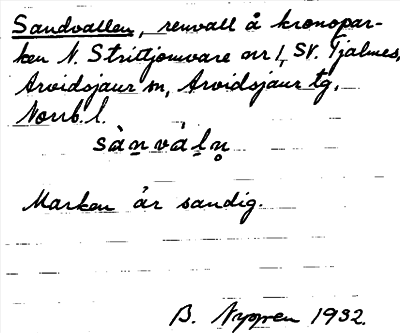 Sandvallen, renvall å kronopar-
ken N. Strittjomvare nr 1, SV. Tjalmes,
Arvidsjaur sn, Arvidsjaur tg,
Norrb. l.
sànvál̥n̥
Marken är sandig.
B. Nygren 1932.